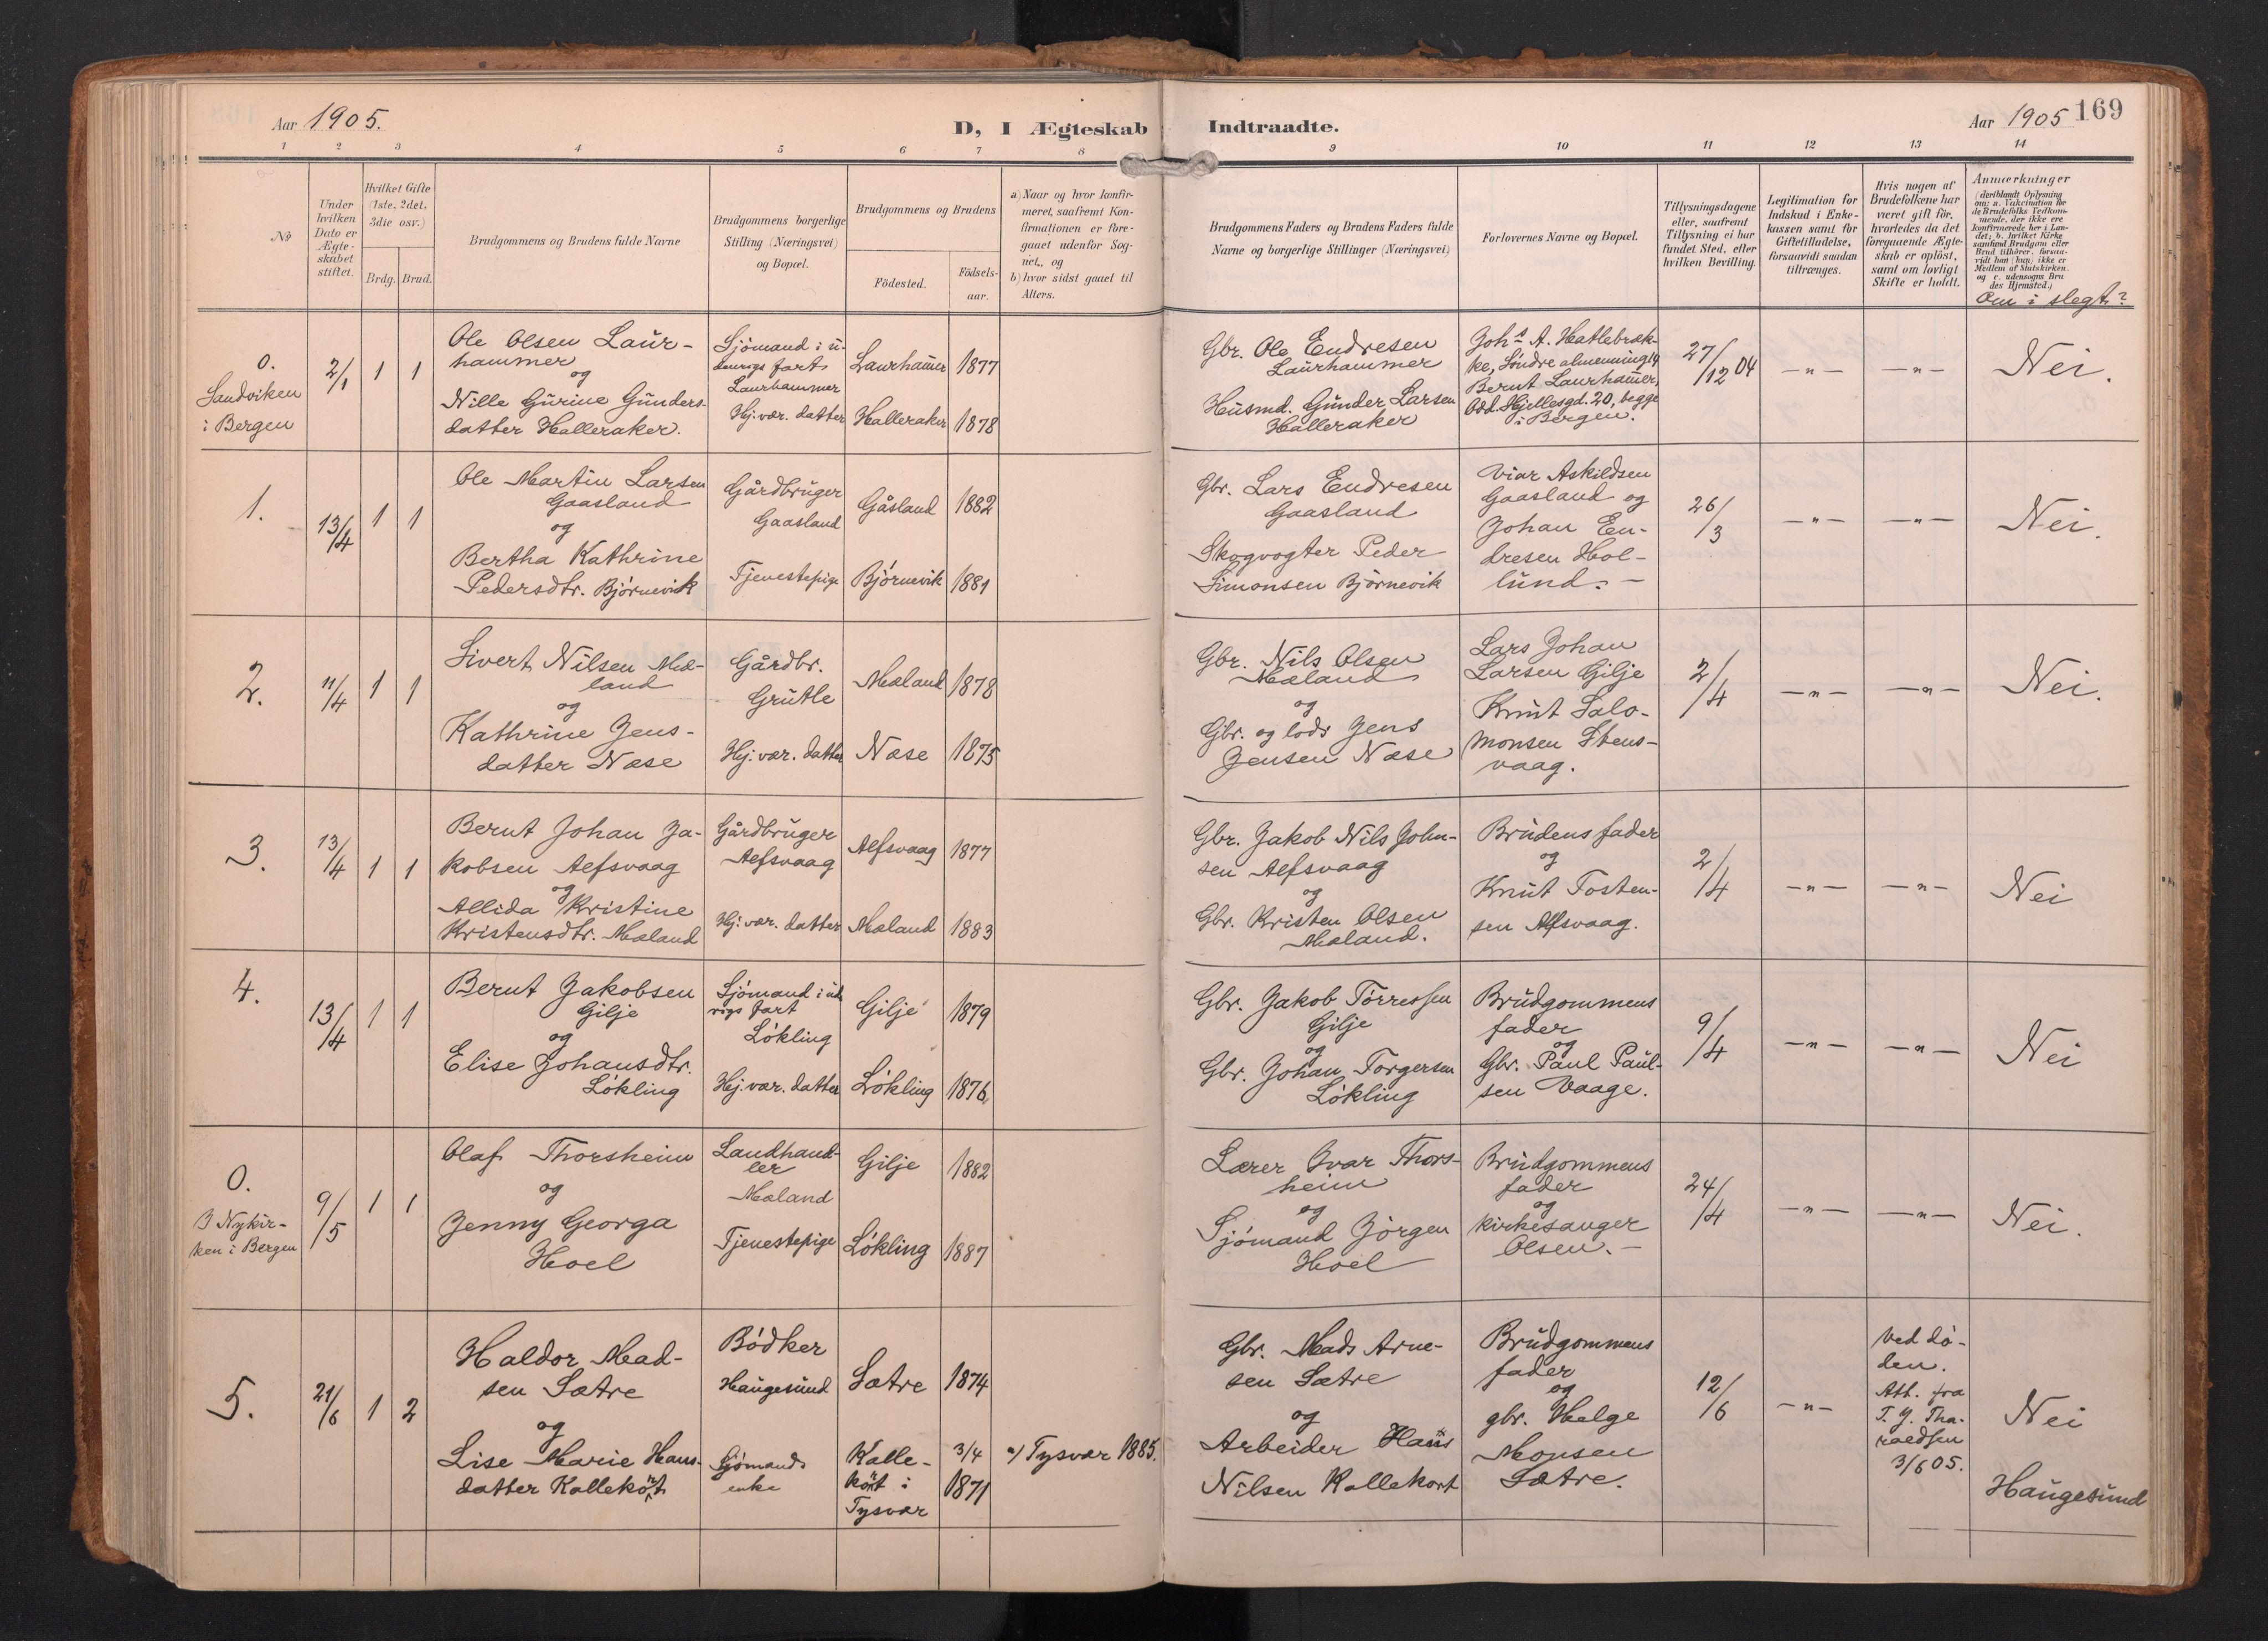 Aar 1905.
D, I Ægteskab Indtraadte.
Aar 1905 169
1 2 3 4 5 6 7 8 9 10 11 12 13 14
No
Under
hvilken
Dato er
Ægte-
skabet
stiftet.
Hvilket Gifte
(1ste, 2det,
3die osv.)
Brdg. Brud.
Brudgommens og Brudens fulde Navne
Brudgommens borgerlige
Stilling (Næringsvei)
og Bopæl.
Brudgommens og Brudens
Fødested.
Fødsels-
aar.
a) Naar og hvor konfir-
meret, saafremt Kon-
firmationen er fore-
gaaet udenfor Sog-
net, og
b) hvor sidst gaaet til
Alters.
Brudgommens Faders og Brudens Faders fulde
Navne og borgerlige Stillinger (Næringsvei)
Forlovernes Navne og Bopæl.
Tillysningsdagene
eller, saafremt
Tillysning ei har
fundet Sted, efter
hvilken Bevilling.
Legitimation for
Indskud i Enke-
kassen samt for
Giftetilladelse,
forsaavidt saadan
tiltrænges.
Hvis nogen af
Brudefolkene har
været gift før,
hvorledes da det
foregaaende Ægte-
skab er opløst,
samt om lovligt
Skifte er holdt.
Anmærkninger
(deriblandt Oplysning
om: a. Vakcination for
de Brudefolks Vedkom-
mende, der ikke ere
konfirmerede her i Lan-
det; b. hvilket Kirke-
samfund Brudgom eller
Brud tilhører, forsaa-
vidt han (hun) ikke er
Medlem af Statskirken,
og c. udensogns Bru-
des Hjemsted.)
Om i slegt?
0.
Sandviken
i Bergen
2/1
1 1
Ole Olsen Laur-
hammer
og
Nille Gurine Gunders-
datter Halleraker.
Sjömand i u-
denrigs fart
Laurhammer
Hj. vær. datter
Laurhamer 1877
Halleraker 1878
Gbr. Ole Endresen
Laurhammer
Husmd. Gunder Larsen
Halleraker
Johs A. Hatlebræk-
ke, Söndre almenning 14
Bernt Laurhamer,
Odd. Hjellesgd. 20, begge
i Bergen.
27/12 04
-„-
-„-
Nei.
1.
13/4
1 1
Ole Martin Larsen
Gaasland
og
Bertha Kathrine
Pedersdtr. Björnevik
Gårdbruger
Gaasland
Tjenestepige
Gåsland 1882
Björnevik 1881
Gbr. Lars Endresen
Gaasland
Skogvogter Peder
Simonsen Björnevik
Viar Askildsen
Gaasland og
Johan En-
dresen Hol-
lund. -
26/3
-„-
-„-
Nei.
2.
11/4
1 1
Sivert Nilsen Mæ-
land
og
Kathrine Jens-
datter Næse
Gårdbr.
Grutle
Hj. vær. datter
Mæland 1878
Næse 1875
Gbr. Nils Olsen
Mæland
og
Gbr. og lods Jens
Jensen Næse
Lars Johan
Larsen Gilje
Knut Salo-
monsen Stens-
vaag.
2/4
-„-
-„-
Nei.
3.
13/4
1 1
Bernt Johan Ja-
kobsen Alfsvaag
og
Allida Kristine
Kristensdtr. Mæland
Gårdbruger
Alfsvaag
Hj. vær. datter
Alfsvaag 1877
Mæland 1883
Gbr. Jakob Nils John-
sen Alfsvaag
og
Gbr. Kristen Olsen
Mæland.
Brudens fader
og
Knut Tosten-
sen Alfsvaag.
2/4
-„-
-„-
Nei
4.
13/4
1 1
Bernt Jakobsen
Gilje
og
Elise Johansdtr.
Lökling
Sjömand i ud
rigs fart
Lökling
Hj. vær. datter
Gilje 1879
Lökling 1876
Gbr. Jakob Törressen
Gilje
og
Gbr. Johan Torgersen
Lökling
Brudgommens
fader
og
Gbr. Paul Paul-
sen Vaage.
9/4
-„-
-„-
Nei
0.
I Nykir-
ken i Bergen
9/5
1 1
Olaf Thorsheim
og
Jenny Georga
Hoel
Landhand-
ler
Mæland
Tjenestepige
Gilje 1882
Lökling 1887
Lærer Ivar Thors-
heim
og
Sjömand Jörgen
Hoel
Brudgommens
fader
og
kirkesanger
Olsen. -
24/4
-„-
-„-
Nei.
5.
21/6
1 2
Haldor Mad-
sen Sætre
og
Lise Marie Hans-
datter Kallekört
Bödker
Haugesund
Sjömands
enke
Sætre 1874
Kalle-
kört i
Tysvær
3/4
1871
a) Tysvær 1885.
Gbr. Mads Arne-
sen Sætre
og
Arbeider Hans
Nilsen Kallekort
Brudgommens
fader
og
gbr. Helge
Monsen
Sætre.
12/6
-„-
Ved dö-
den.
Att. fra
T. J. Tha-
raldsen
3/6 05.
Nei
Haugesund